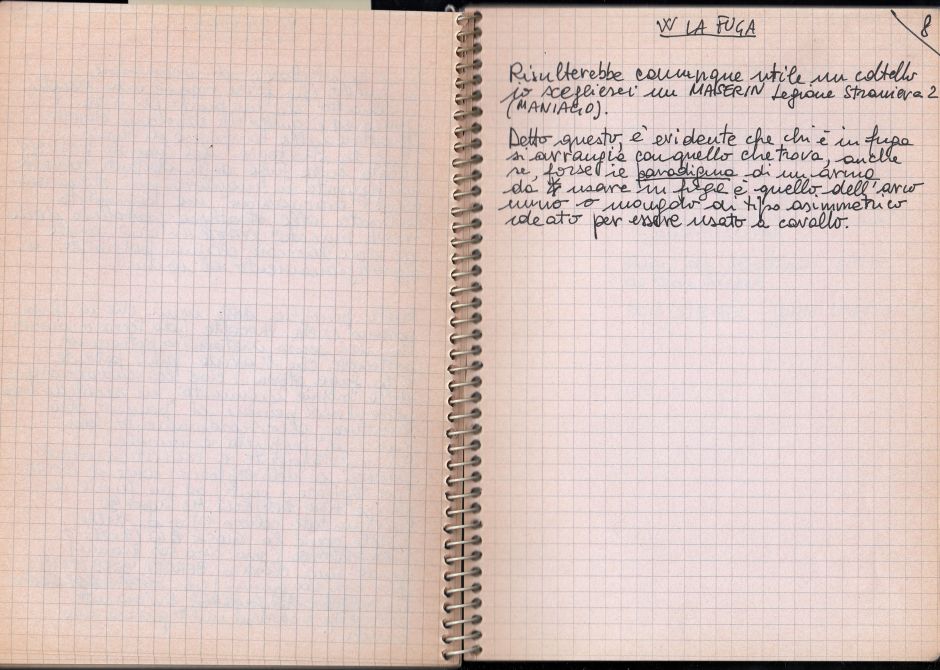 W LA FUGA
8
Risulterebbe comunque utile un coltello
io sceglierei un MASERIN Legione Straniera 2
(MANIAGO).
Detto questo, è evidente che chi è in fuga
si arrangia con quello che trova, anche
se, forse, il paradigma di un'arma
da usare in fuga è quello dell'arco
unno o mongolo di tipo asimmetrico
ideato per essere usato a cavallo.